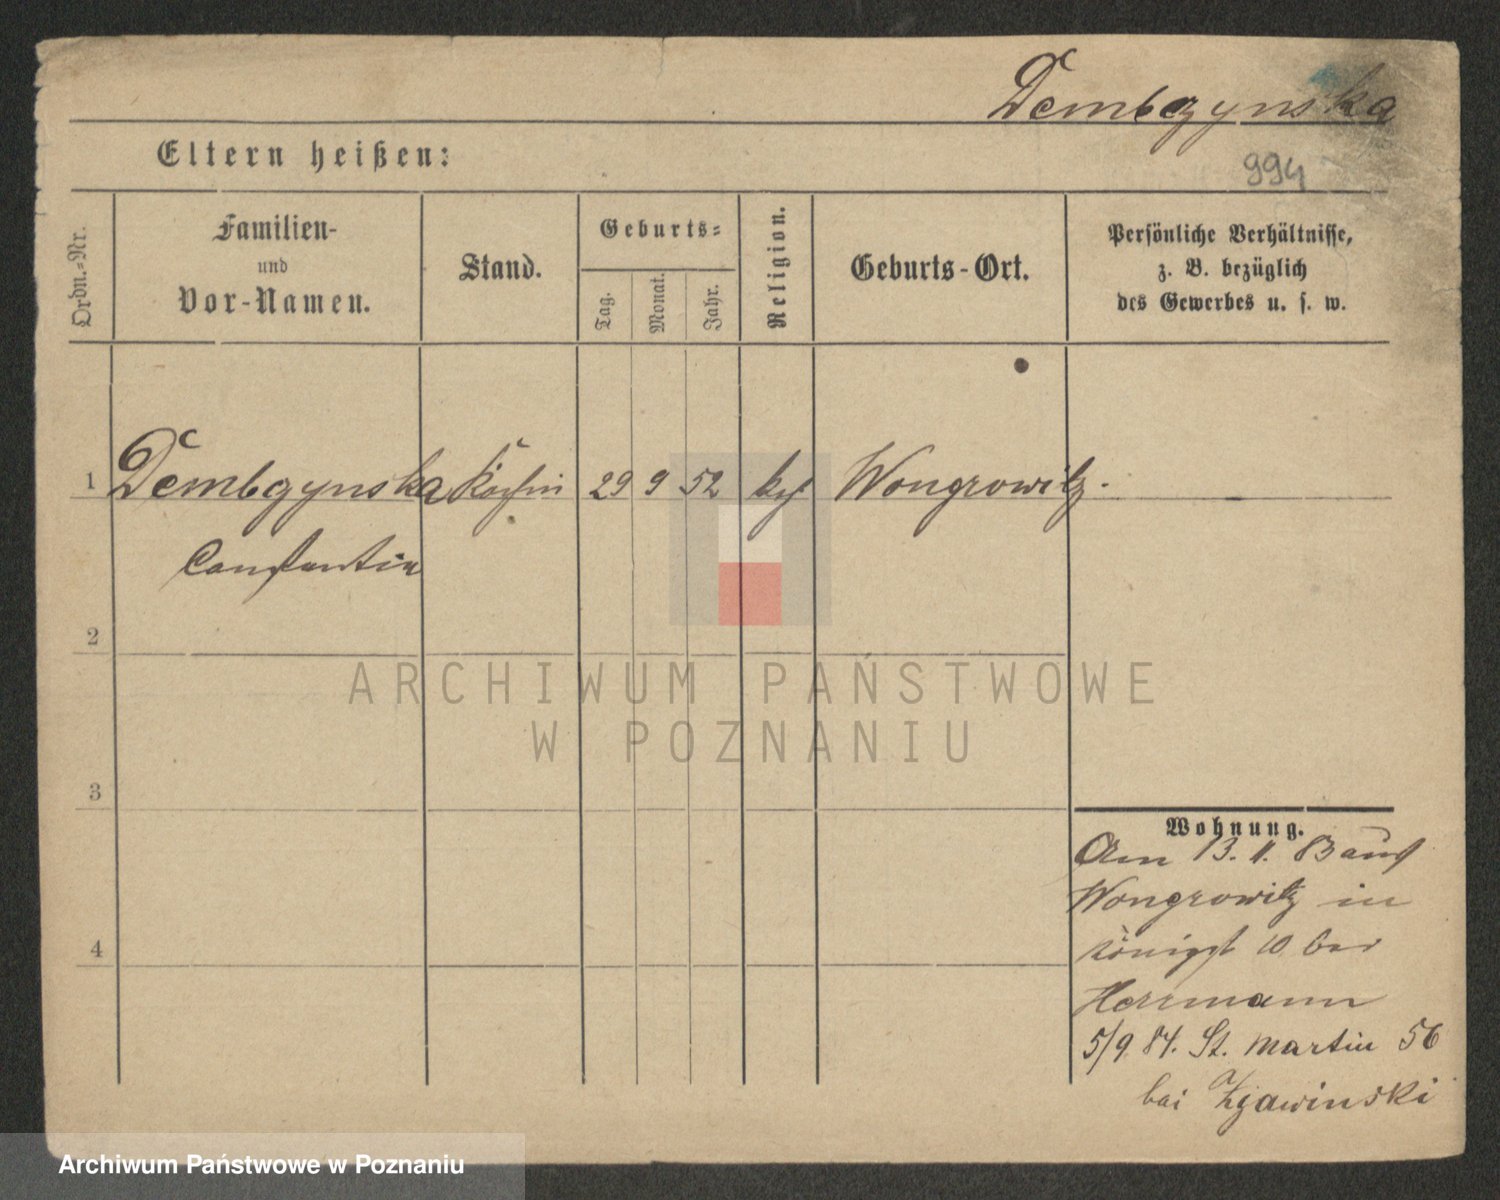 Dembczynska
Eltern heißen:
994
Ordn.-Nr.
Familien-
und
Vor-Namen.
Stand.
Geburts-
Tag.
Monat.
Jahr.
Religion.
Geburts-Ort.
Persönliche Verhältnisse,
z. B. bezüglich
des Gewerbes u. s. w.
1 Dembczynska Köchin 29 9 52 kth Wongrowitz.
Constantia
2
3
4
Wohnung.
Am 13. 11. 83 aus
Wongrowitz in
Königst 10 bei
Herrmann
5/9. 84. St. Martin 56
bei Zgawinski
ARCHIWUM PAŃSTWOWE
W POZNANIU
Archiwum Państwowe w Poznaniu